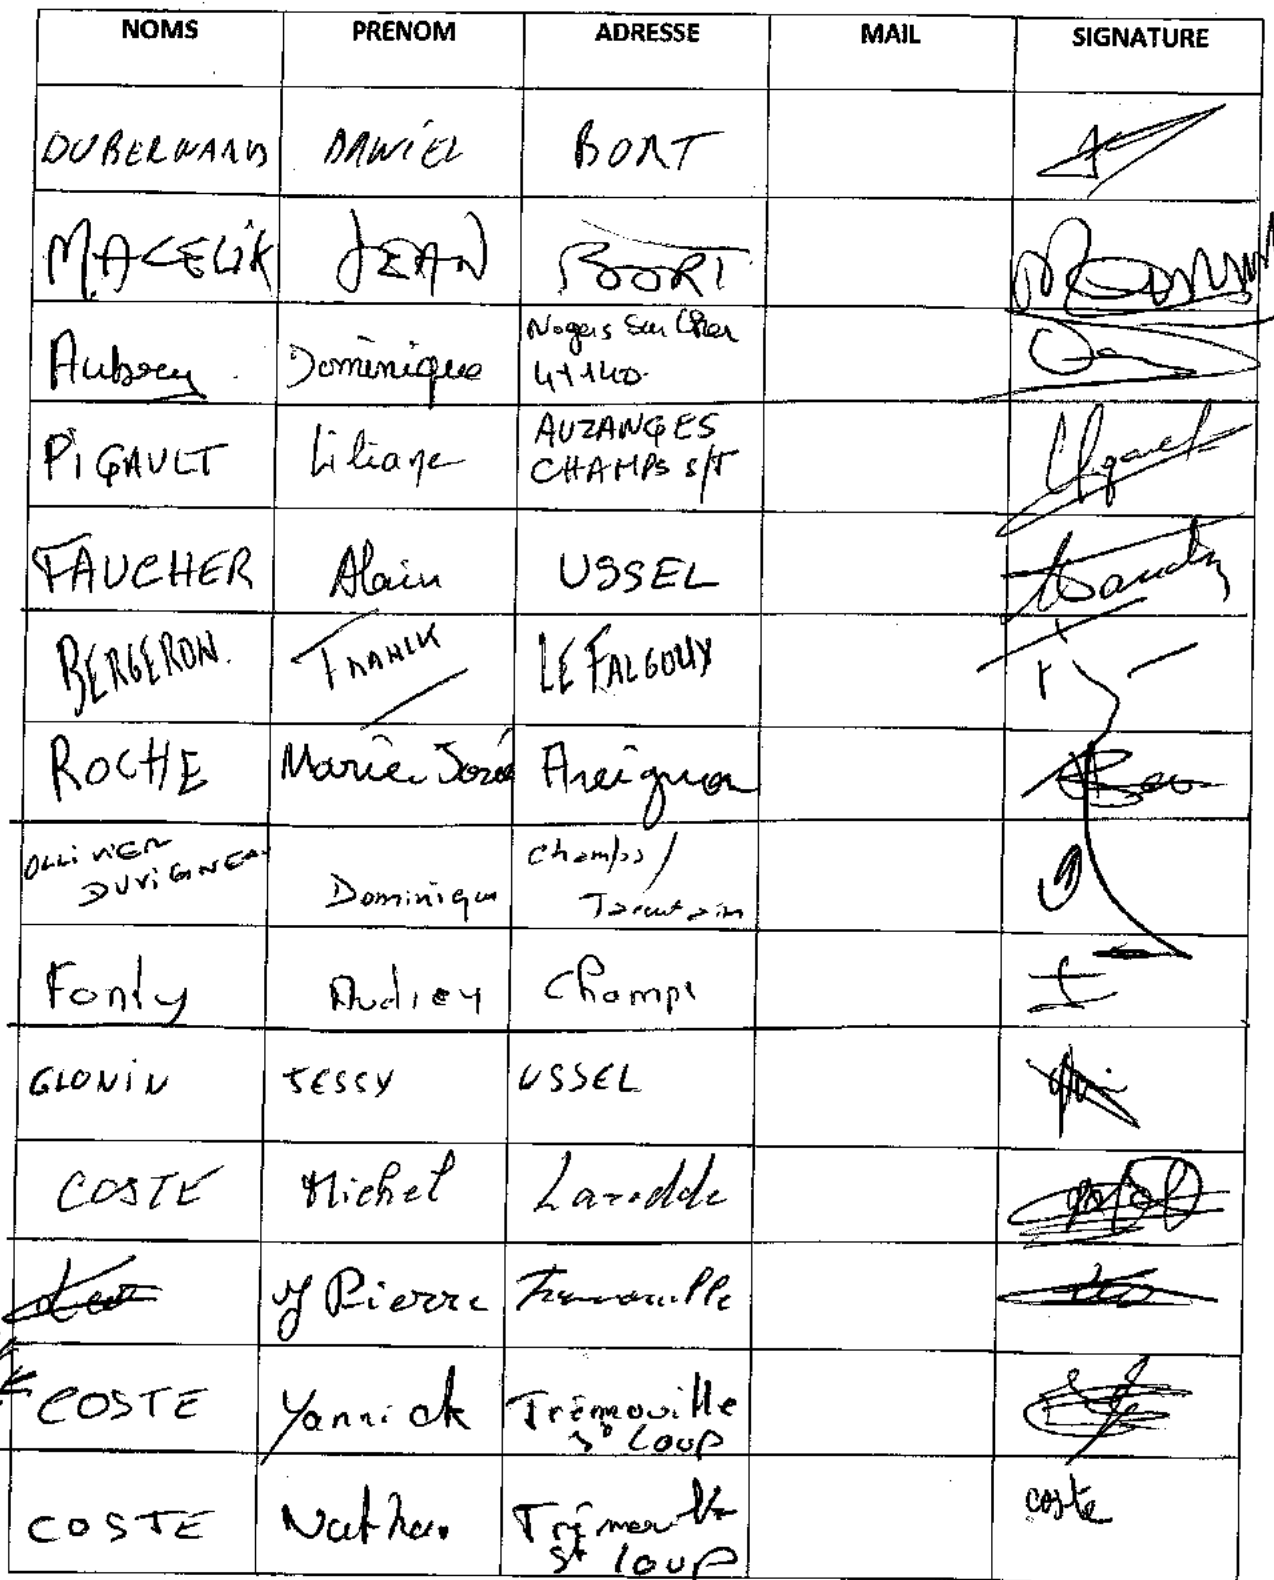 NOMS PRENOM ADRESSE MAIL SIGNATURE
DUBERNARD DANIEL BORT
MACELIK JEAN BORT
Aubrey Dominique Noyers Sur Cher
41140
PIGAULT Liliane AUZANGES
CHAMPS s/T
FAUCHER Alain USSEL
BERGERON. FRANCK LE FALGOUX
ROCHE Marie José
OLLIVIER Champs/
DUVIGNEAU Dominique Tarentaine
Fonly Audrey Champs
GLONIN JESSY USSEL
COSTE Michel Larodde
Pierre Tremouille
COSTE Yannick Trémouille
St Loup
COSTE Nathan Trémouille coste
St Loup